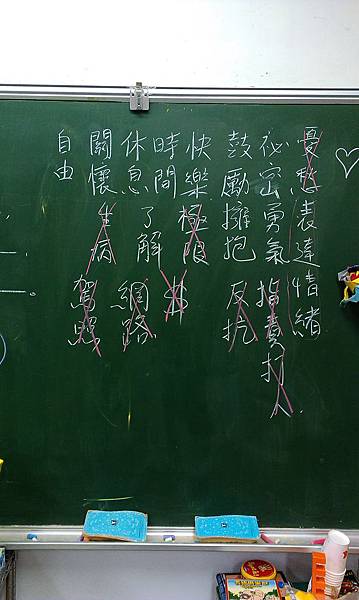 憂愁 表達情緒
祕密 勇氣 指責 打人
鼓勵 擁抱 反抗
快樂 極限
時間 $
休息 了解 網路
關懷 生病 駕照
自由